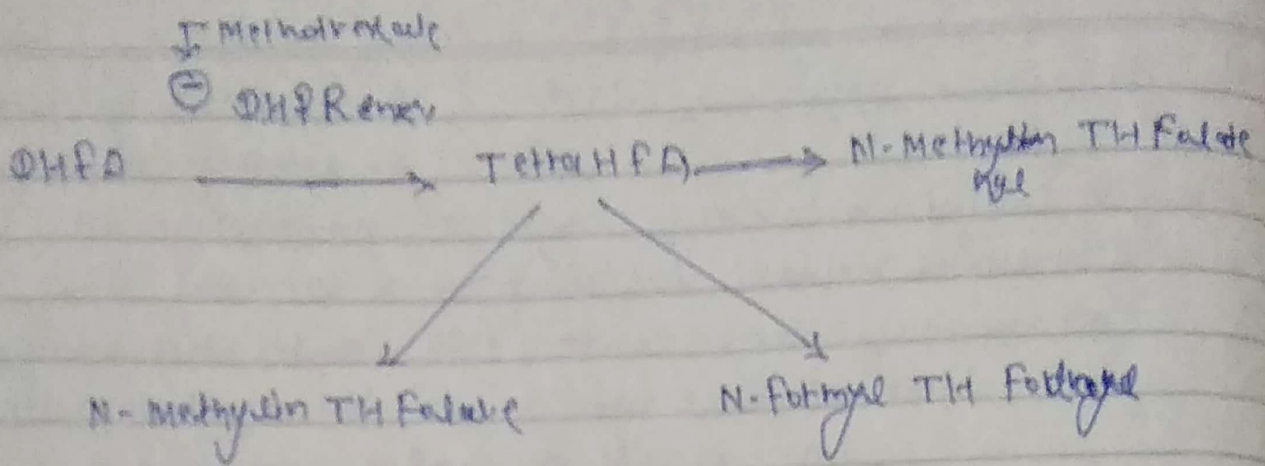 Methotrexate
⊖ DHFR enzy
DHFA → Tetra HFA → N-Methyl TH Folate
N-Methylin TH Folate
N-formyl TH